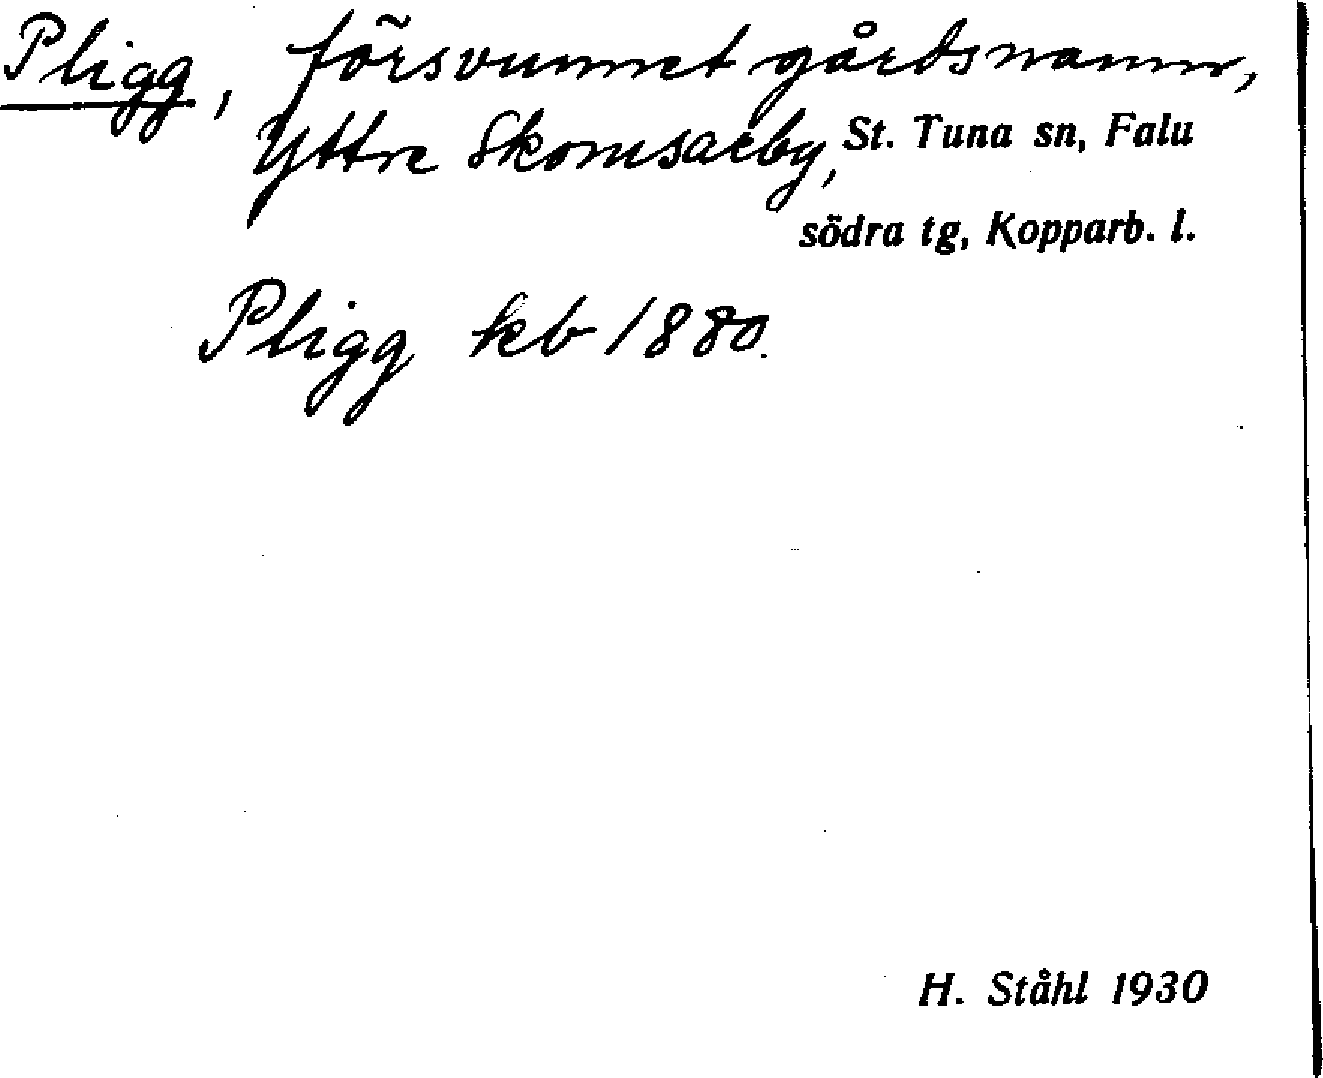 Pligg, försvunnet gårdsnamn,
Yttre Skomsarby, St. Tuna sn, Falu
södra tg, Kopparb. l.
Pligg kb 1880.
H. Ståhl 1930